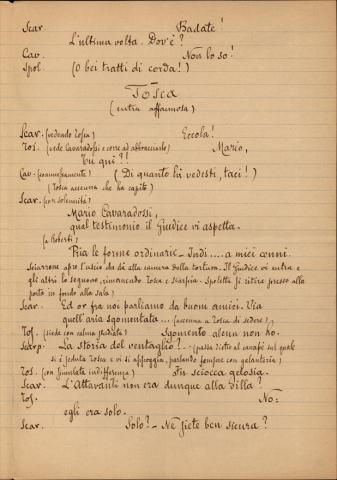 Scar. Badate!
L'ultima volta. Dov'è?
Cav. Non lo so!
Spol. (O bei tratti di corda!)
Tosca
(entra affannosa)
Scar. (vedendo Tosca) Eccola!
Tos. (vede Cavaradossi e corre ad abbracciarlo) Mario,
Tu qui?!
Cav. (sommessamente) (Di quanto là vedesti, taci!)
(Tosca accenna che ha capito)
Scar. (con solennità)
Mario Cavaradossi,
qual testimonio il Giudice vi aspetta.
(a Roberti)
Pria le forme ordinarie - Indi.... a miei cenni.
Sciarrone apre l'uscio che dà alla camera della tortura. Il Giudice vi entra e
gli altri lo seguono, rimanendo Tosca e Scarpia. Spoletta si ritira presso alla
porta in fondo alla sala)
Scar. Ed or fra noi parliamo da buoni amici. Via
quell'aria sgomentata.... (accenna a Tosca di sedere)
Tos. (siede con calma studiata) Sgomento alcun non ho.
Scarp. La storia del ventaglio?.. (passa dietro al canapè sul quale
si è seduta Tosca e vi si appoggia, parlando sempre con galanteria)
Tos. (con simulata indifferenza) Fu sciocca gelosia.
Scar. L'Attavanti non era dunque alla villa?
Tos. No:
egli era solo.
Scar. Solo? - Ne siete ben sicura?